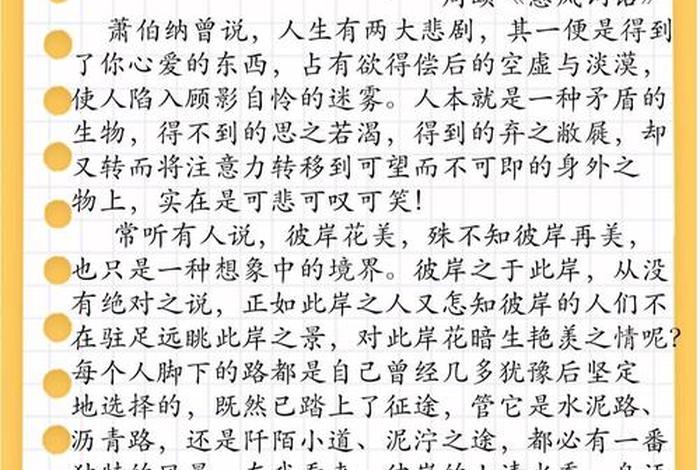 萧伯纳曾说，人生有两大悲剧，其一便是得到
了你心爱的东西，占有欲得偿后的空虚与淡漠，
使人陷入顾影自怜的迷雾。人本就是一种矛盾的
生物，得不到的思之若渴，得到的弃之敝屣，却
又转而将注意力转移到可望而不可即的身外之
物上，实在是可悲可叹可笑！
常听有人说，彼岸花美，殊不知彼岸再美，
也只是一种想象中的境界。彼岸之于此岸，从没
有绝对之说，正如此岸之人又怎知彼岸的人们不
在驻足远眺此岸之景，对此岸花暗生艳羡之情呢？
每个人脚下的路都是自己曾经几多犹豫后坚定
地选择的，既然已踏上了征途，管它是水泥路、
沥青路，还是阡陌小道、泥泞之途，都必有一番